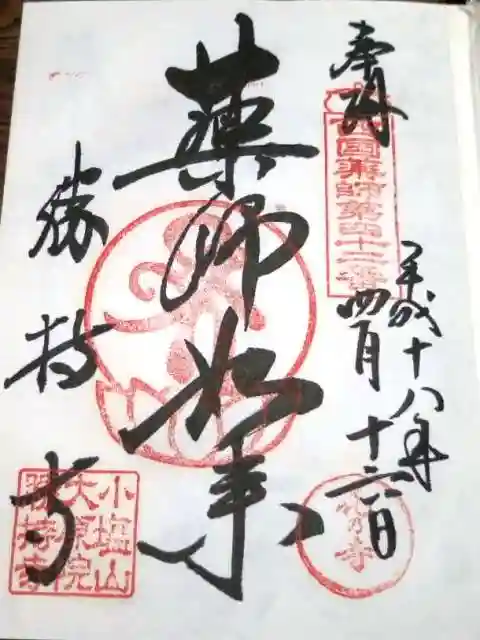 奉拝
西国薬師第四十二番
平成十八年
四月十六日
薬師如来
花の寺
勝持寺
小塩山
大原院
勝持寺